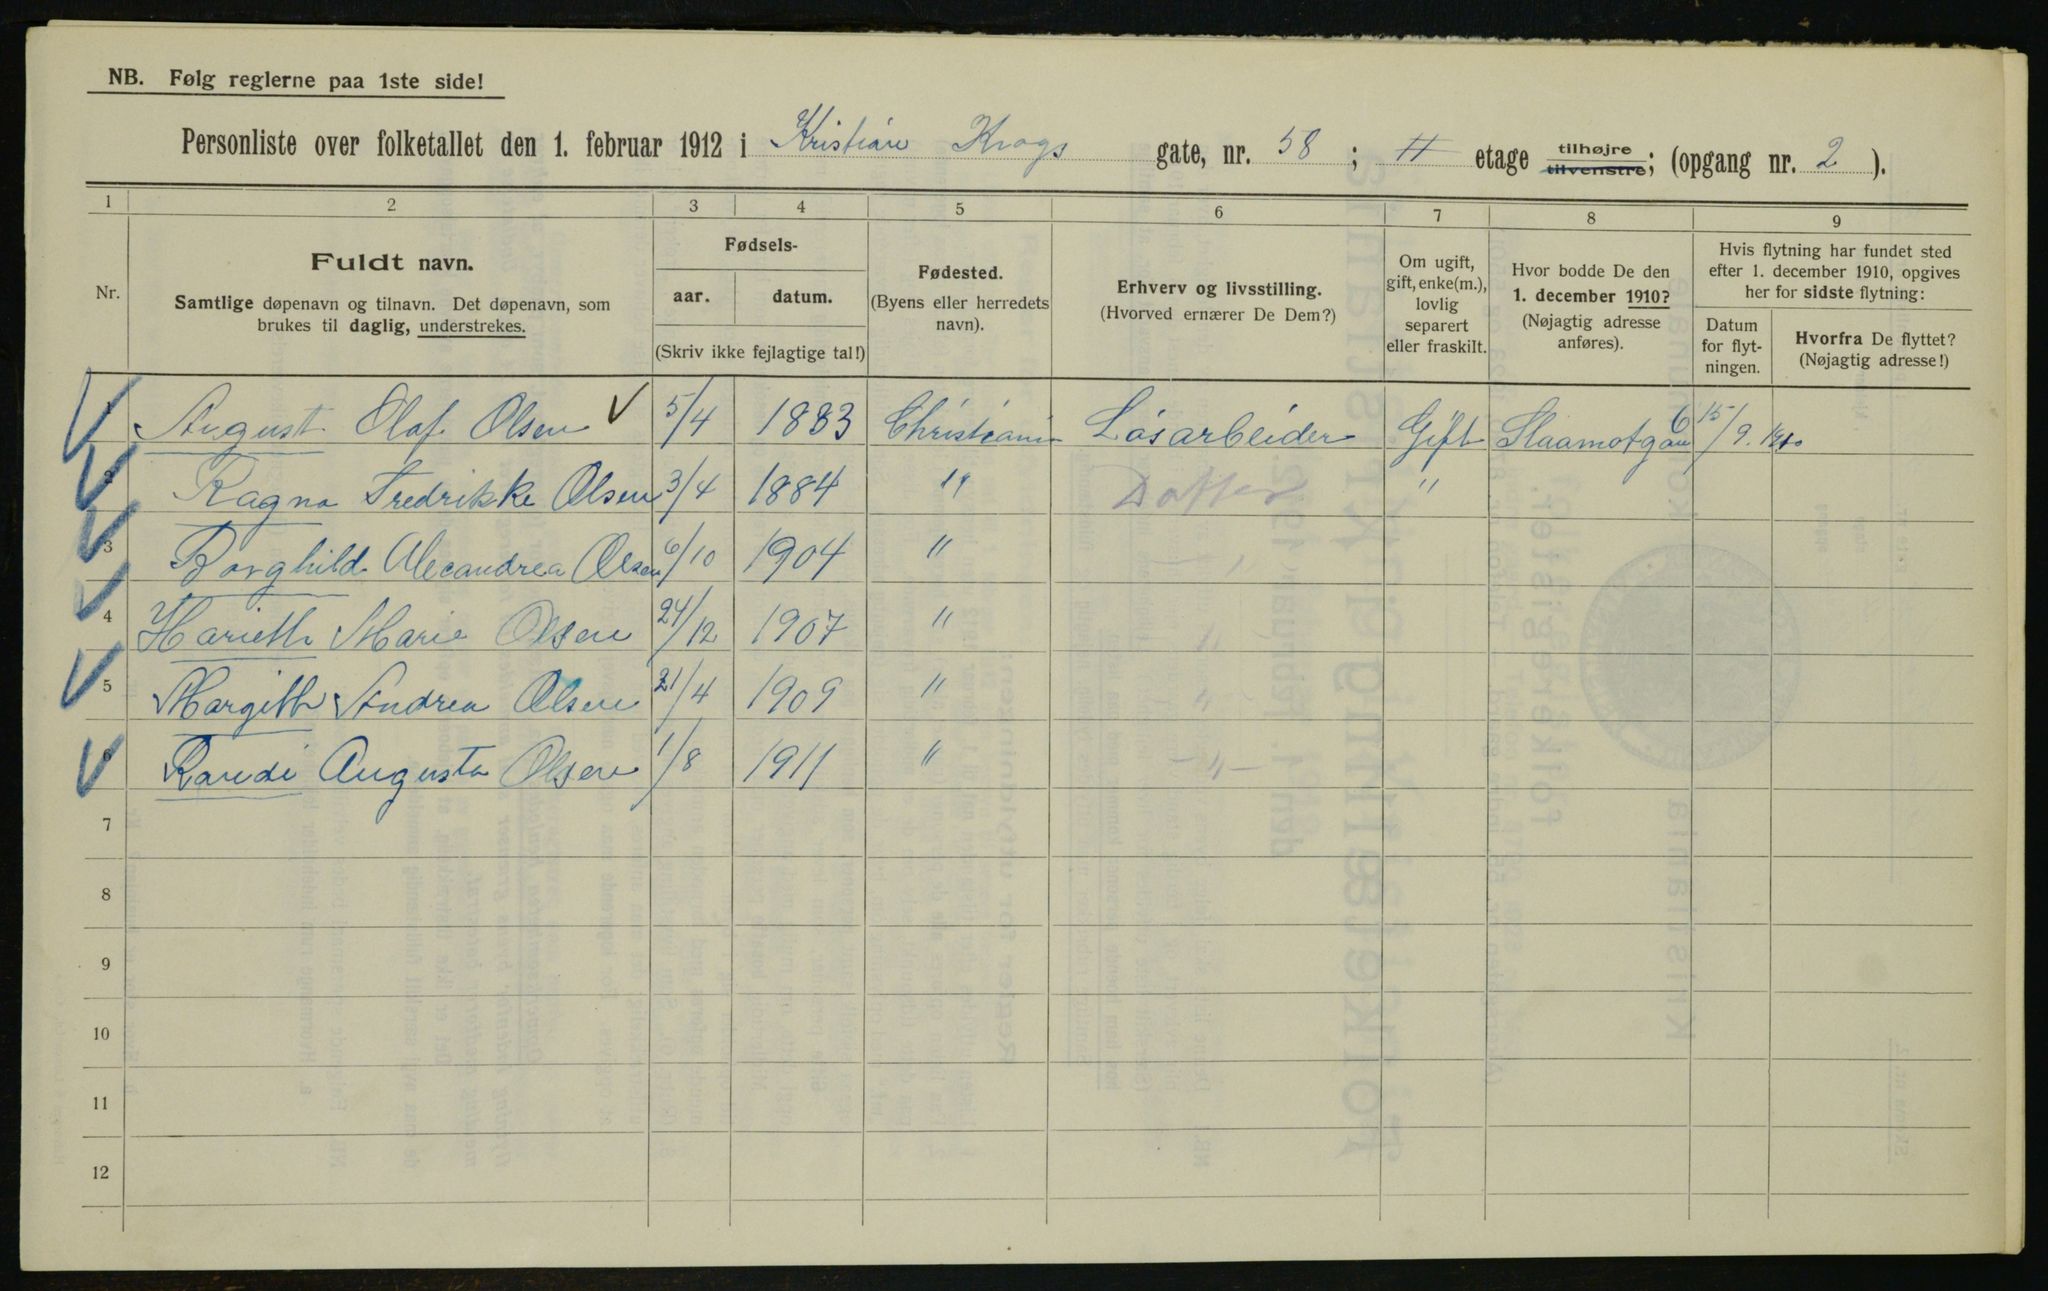 NB. Følg reglerne paa 1ste side!
Personliste over folketallet den 1. februar 1912 i Kristian Krogs gate, nr. 58 ; II etage tilhøjre tilvenstre; (opgang nr. 2 ).
1 2 3 4 5 6 7 8 9
Nr.
Fuldt navn.
Samtlige døpenavn og tilnavn. Det døpenavn, som
brukes til daglig, understrekes.
Fødsels-
aar. datum.
(Skriv ikke fejlagtige tal!)
Fødested.
(Byens eller herredets
navn).
Erhverv og livsstilling.
(Hvorved ernærer De Dem?)
Om ugift,
gift, enke(m.),
lovlig
separert
eller fraskilt.
Hvor bodde De den
1. december 1910?
(Nøjagtig adresse
anføres).
Hvis flytning har fundet sted
efter 1. december 1910, opgives
her for sidste flytning:
Datum
for flyt-
ningen.
Hvorfra De flyttet?
(Nøjagtig adresse!)
1 August Olaf Olsen 5/4 1883 Christiania Løsarbeider Gift 6 15/9. 1910
2 Ragna Fredrikke Olsen 3/4 1884 " Datter "
3 Borghild Alecandrea Olsen 6/10 1904 "
4 Harieth Marie Olsen 24/12 1907 " "
5 Margith Andrea Olsen 21/4 1909 " "
6 Randi Augusta Olsen 1/8 1911 " -"-
7
8
9
10
11
12